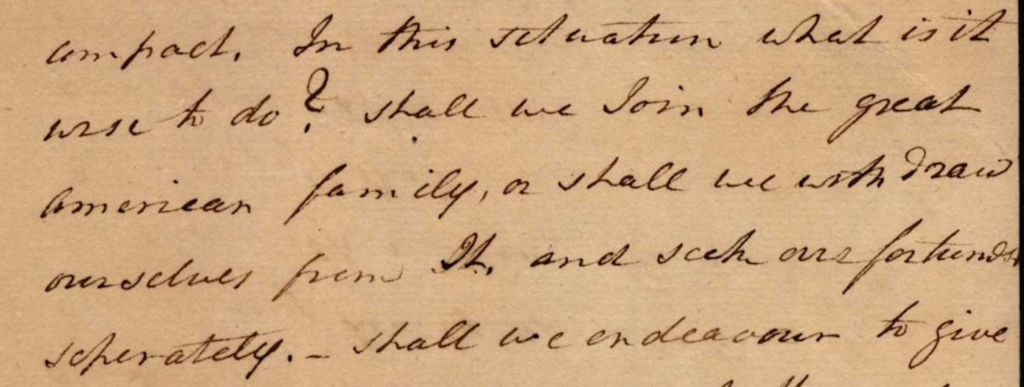 compact. In this situation what is it
wise to do? shall we Join the great
American family, or shall we with draw
ourselves from It. and seek our fortunes
seperately. – shall we endeavour to give